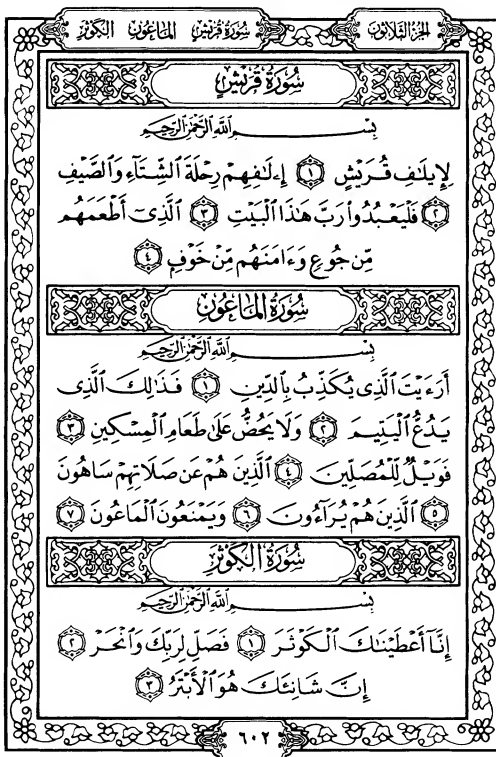 الجزء الثلاثون سورة قريش الماعون الكوثر
سُورَةُ قُرَيْشٍ
بِسْمِ اللَّهِ الرَّحْمَٰنِ الرَّحِيمِ
لِإِيلَٰفِ قُرَيْشٍ ١ إِۦلَٰفِهِمْ رِحْلَةَ ٱلشِّتَآءِ وَٱلصَّيْفِ
٢ فَلْيَعْبُدُوا۟ رَبَّ هَٰذَا ٱلْبَيْتِ ٣ ٱلَّذِىٓ أَطْعَمَهُم
مِّن جُوعٍ وَءَامَنَهُم مِّنْ خَوْفٍ ٤
سُورَةُ المَاعُونِ
بِسْمِ اللَّهِ الرَّحْمَٰنِ الرَّحِيمِ
أَرَءَيْتَ ٱلَّذِى يُكَذِّبُ بِٱلدِّينِ ١ فَذَٰلِكَ ٱلَّذِى
يَدُعُّ ٱلْيَتِيمَ ٢ وَلَا يَحُضُّ عَلَىٰ طَعَامِ ٱلْمِسْكِينِ ٣
فَوَيْلٌ لِّلْمُصَلِّينَ ٤ ٱلَّذِينَ هُمْ عَن صَلَاتِهِمْ سَاهُونَ
٥ ٱلَّذِينَ هُمْ يُرَآءُونَ ٦ وَيَمْنَعُونَ ٱلْمَاعُونَ ٧
سُورَةُ الكَوْثَرِ
بِسْمِ اللَّهِ الرَّحْمَٰنِ الرَّحِيمِ
إِنَّآ أَعْطَيْنَٰكَ ٱلْكَوْثَرَ ١ فَصَلِّ لِرَبِّكَ وَٱنْحَرْ ٢
إِنَّ شَانِئَكَ هُوَ ٱلْأَبْتَرُ ٣
٦٠٢